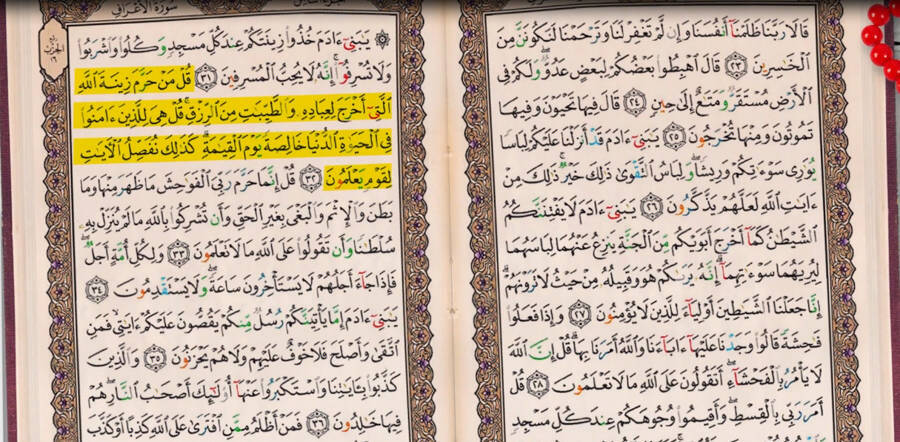 قَالَا رَبَّنَا ظَلَمْنَآ أَنفُسَنَا وَإِن لَّمْ تَغْفِرْ لَنَا وَتَرْحَمْنَا لَنَكُونَنَّ مِنَ
ٱلْخَٰسِرِينَ ٢٣ قَالَ ٱهْبِطُوا۟ بَعْضُكُمْ لِبَعْضٍ عَدُوٌّ وَلَكُمْ فِى
ٱلْأَرْضِ مُسْتَقَرٌّ وَمَتَٰعٌ إِلَىٰ حِينٍ ٢٤ قَالَ فِيهَا تَحْيَوْنَ وَفِيهَا
تَمُوتُونَ وَمِنْهَا تُخْرَجُونَ ٢٥ يَٰبَنِىٓ ءَادَمَ قَدْ أَنزَلْنَا عَلَيْكُمْ لِبَاسًا
يُوَٰرِى سَوْءَٰتِكُمْ وَرِيشًا وَلِبَاسُ ٱلتَّقْوَىٰ ذَٰلِكَ خَيْرٌ ذَٰلِكَ مِنْ
ءَايَٰتِ ٱللَّهِ لَعَلَّهُمْ يَذَّكَّرُونَ ٢٦ يَٰبَنِىٓ ءَادَمَ لَا يَفْتِنَنَّكُمُ
ٱلشَّيْطَٰنُ كَمَآ أَخْرَجَ أَبَوَيْكُم مِّنَ ٱلْجَنَّةِ يَنزِعُ عَنْهُمَا لِبَاسَهُمَا
لِيُرِيَهُمَا سَوْءَٰتِهِمَآ إِنَّهُۥ يَرَىٰكُمْ هُوَ وَقَبِيلُهُۥ مِنْ حَيْثُ لَا تَرَوْنَهُمْ
إِنَّا جَعَلْنَا ٱلشَّيَٰطِينَ أَوْلِيَآءَ لِلَّذِينَ لَا يُؤْمِنُونَ ٢٧ وَإِذَا فَعَلُوا۟
فَٰحِشَةً قَالُوا۟ وَجَدْنَا عَلَيْهَآ ءَابَآءَنَا وَٱللَّهُ أَمَرَنَا بِهَا قُلْ إِنَّ ٱللَّهَ
لَا يَأْمُرُ بِٱلْفَحْشَآءِ أَتَقُولُونَ عَلَى ٱللَّهِ مَا لَا تَعْلَمُونَ ٢٨ قُلْ
أَمَرَ رَبِّى بِٱلْقِسْطِ وَأَقِيمُوا۟ وُجُوهَكُمْ عِندَ كُلِّ مَسْجِدٍ
سُورَةُ الأَعْرَافِ
ربع الحزب ١٦
يَٰبَنِىٓ ءَادَمَ خُذُوا۟ زِينَتَكُمْ عِندَ كُلِّ مَسْجِدٍ وَكُلُوا۟ وَٱشْرَبُوا۟
وَلَا تُسْرِفُوٓا۟ إِنَّهُۥ لَا يُحِبُّ ٱلْمُسْرِفِينَ ٣١ قُلْ مَنْ حَرَّمَ زِينَةَ ٱللَّهِ
ٱلَّتِىٓ أَخْرَجَ لِعِبَادِهِۦ وَٱلطَّيِّبَٰتِ مِنَ ٱلرِّزْقِ قُلْ هِىَ لِلَّذِينَ ءَامَنُوا۟
فِى ٱلْحَيَوٰةِ ٱلدُّنْيَا خَالِصَةً يَوْمَ ٱلْقِيَٰمَةِ كَذَٰلِكَ نُفَصِّلُ ٱلْءَايَٰتِ
لِقَوْمٍ يَعْلَمُونَ ٣٢ قُلْ إِنَّمَا حَرَّمَ رَبِّىَ ٱلْفَوَٰحِشَ مَا ظَهَرَ مِنْهَا وَمَا
بَطَنَ وَٱلْإِثْمَ وَٱلْبَغْىَ بِغَيْرِ ٱلْحَقِّ وَأَن تُشْرِكُوا۟ بِٱللَّهِ مَا لَمْ يُنَزِّلْ بِهِۦ
سُلْطَٰنًا وَأَن تَقُولُوا۟ عَلَى ٱللَّهِ مَا لَا تَعْلَمُونَ ٣٣ وَلِكُلِّ أُمَّةٍ أَجَلٌ
فَإِذَا جَآءَ أَجَلُهُمْ لَا يَسْتَأْخِرُونَ سَاعَةً وَلَا يَسْتَقْدِمُونَ ٣٤
يَٰبَنِىٓ ءَادَمَ إِمَّا يَأْتِيَنَّكُمْ رُسُلٌ مِّنكُمْ يَقُصُّونَ عَلَيْكُمْ ءَايَٰتِى فَمَنِ
ٱتَّقَىٰ وَأَصْلَحَ فَلَا خَوْفٌ عَلَيْهِمْ وَلَا هُمْ يَحْزَنُونَ ٣٥ وَٱلَّذِينَ
كَذَّبُوا۟ بِـَٔايَٰتِنَا وَٱسْتَكْبَرُوا۟ عَنْهَآ أُو۟لَٰٓئِكَ أَصْحَٰبُ ٱلنَّارِ هُمْ
فِيهَا خَٰلِدُونَ ٣٦ فَمَنْ أَظْلَمُ مِمَّنِ ٱفْتَرَىٰ عَلَى ٱللَّهِ كَذِبًا أَوْ كَذَّبَ